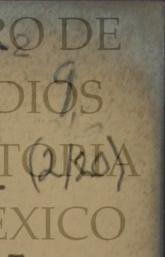 RO DE
DIOS
9,
TORIA
(2/20)
EXICO